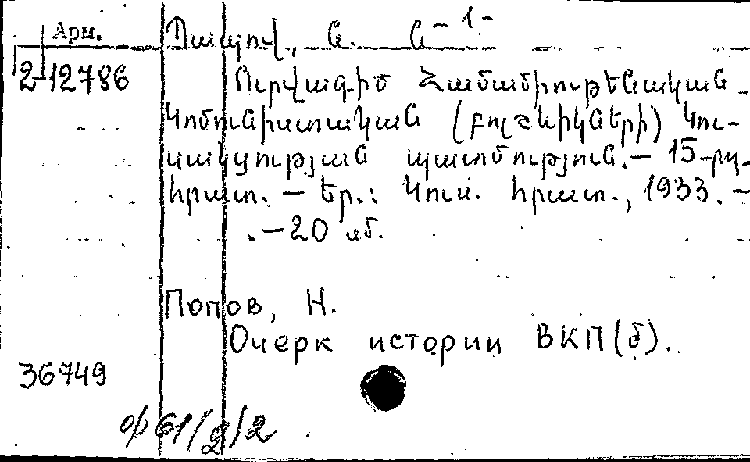 Арм.
Պապով, Ն. Ն -1-
2-12786 Ուրվագիծ Համամիութենական
Կոմունիստական (բոլշևիկների) Կու-
սակցության պատմություն. — 15-րդ.
հրատ. — Եր.: Կուս. հրատ., 1933. —
. — 20 սմ.
Попов, Н.
Очерк истории ВКП(б).
36749